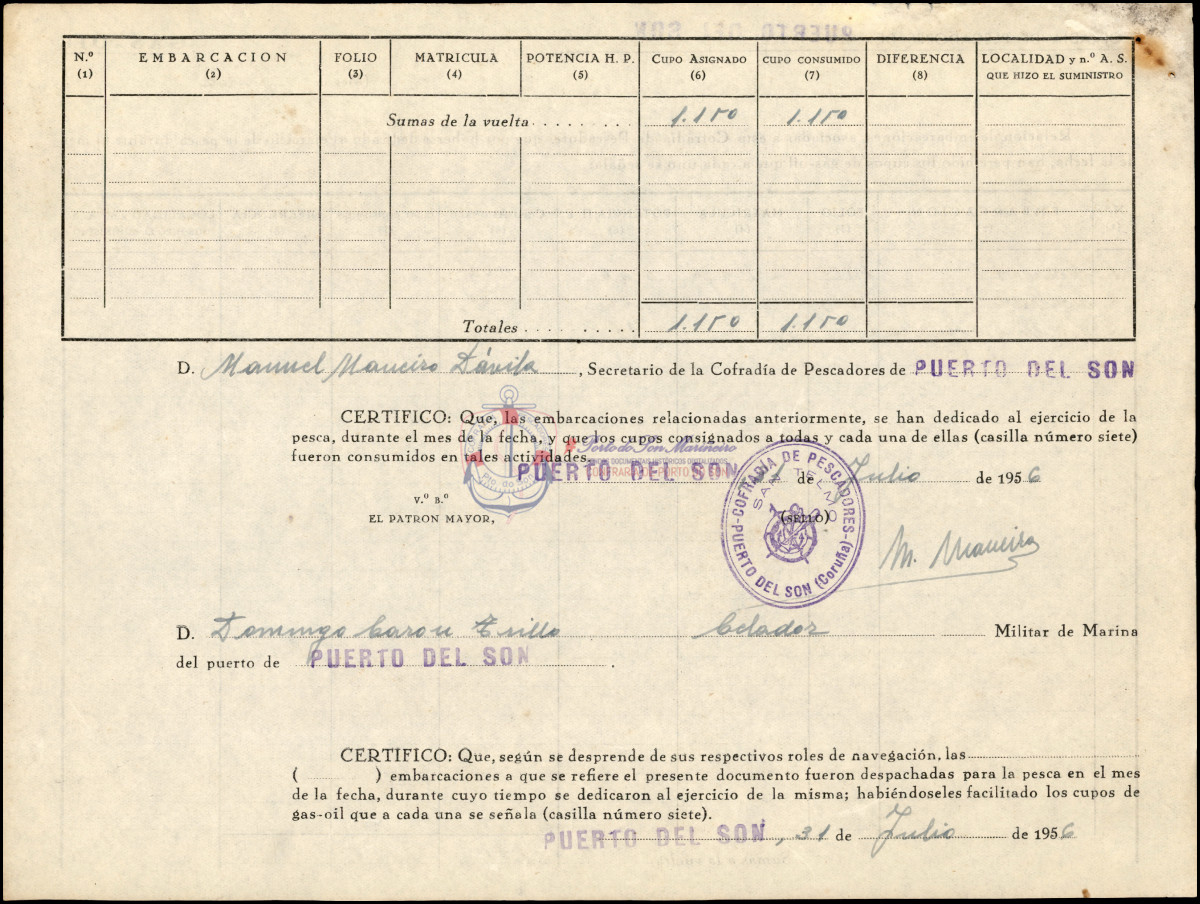 N.º EMBARCACION FOLIO MATRICULA POTENCIA H. P. CUPO ASIGNADO CUPO CONSUMIDO DIFERENCIA LOCALIDAD y n.º A. S.
(1) (2) (3) (4) (5) (6) (7) (8) QUE HIZO EL SUMINISTRO
Sumas de la vuelta 1.150 1.150
Totales 1.150 1.150
D. Manuel Maneiro Dávila, Secretario de la Cofradía de Pescadores de PUERTO DEL SON
CERTIFICO: Que, las embarcaciones relacionadas anteriormente, se han dedicado al ejercicio de la
pesca, durante el mes de la fecha, y que los cupos consignados a todas y cada una de ellas (casilla número siete)
fueron consumidos en tales actividades.
Porto do Son Mariñeiro
PUERTO DEL SON 31 de Julio de 1956
Pto. do Son
V.º B.º
EL PATRON MAYOR,
(SELLO)
COFRADÍA DE PESCADORES-PUERTO DEL SON (Coruña)-
SAN TELMO
M. Maneiro
D. Domingo Carou Trillo Celador Militar de Marina
del puerto de PUERTO DEL SON.
CERTIFICO: Que, según se desprende de sus respectivos roles de navegación, las
( ) embarcaciones a que se refiere el presente documento fueron despachadas para la pesca en el mes
de la fecha, durante cuyo tiempo se dedicaron al ejercicio de la misma; habiéndoseles facilitado los cupos de
gas-oil que a cada una se señala (casilla número siete).
PUERTO DEL SON, 31 de Julio de 1956